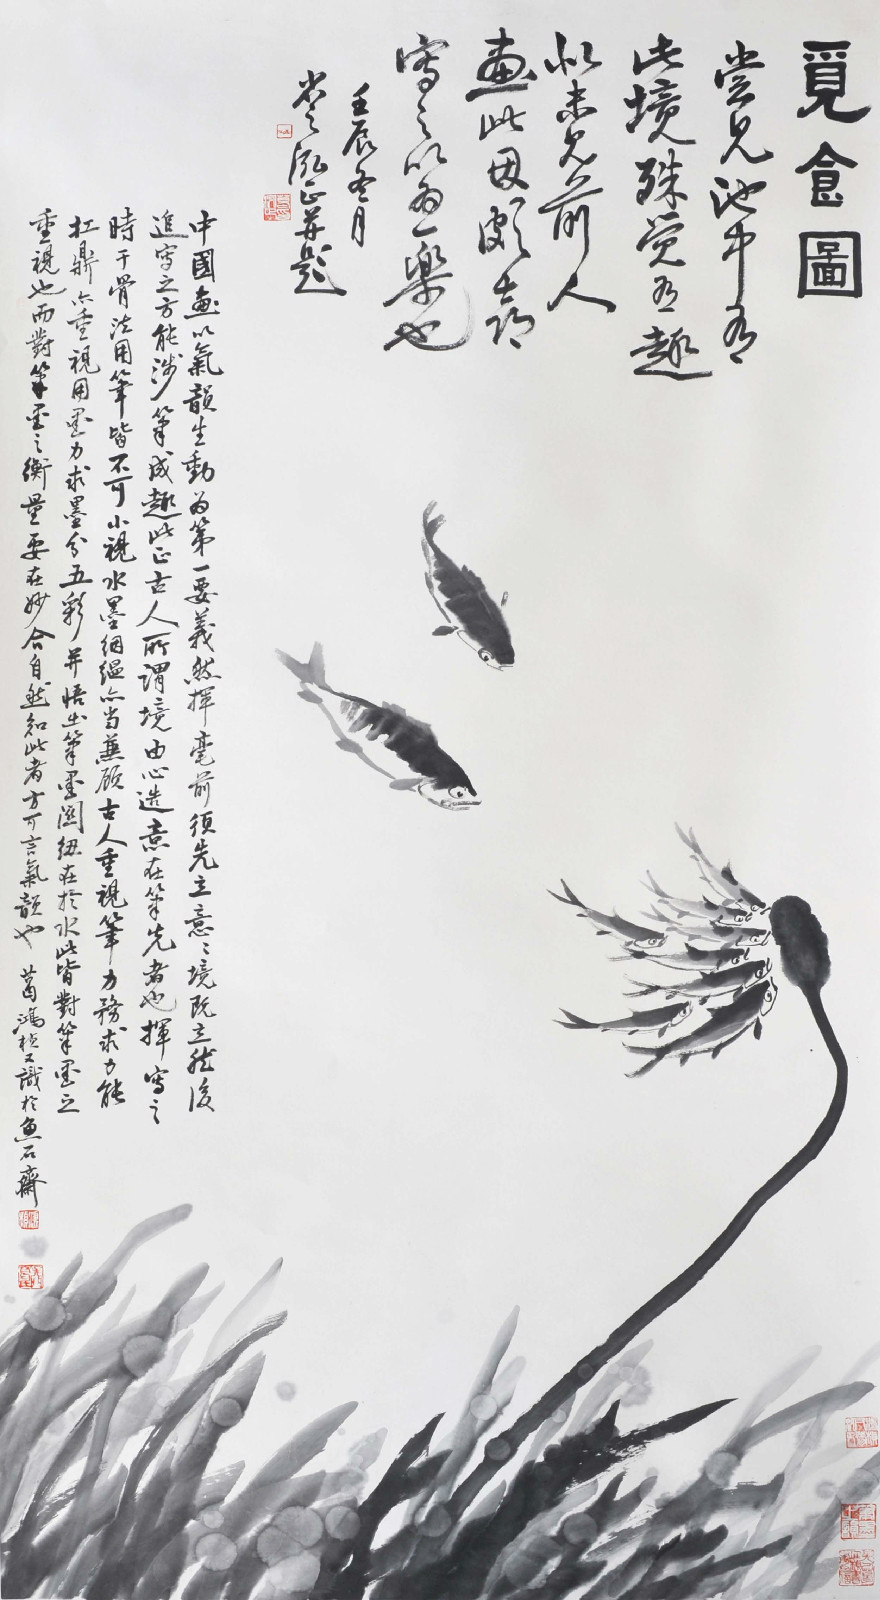 覓食圖
嘗見池中有
此境殊覺有趣
似未見前人
畫此因戲為
寫之以為一樂也
壬辰冬月
泓正并題
中國畫以氣韻生動為第一要義然揮毫前須先立意意境既立然後
追寫之方能涉筆成趣此正古人所謂境由心造意在筆先者也揮寫之
時于骨法用筆皆不可小視水墨絪縕亦当兼顾古人重視筆力務求力能
扛鼎亦重視用墨力求墨分五彩并悟出筆墨關紐在於水此皆對筆墨之
重視也而對筆墨之衡量要在妙合自然知此者方可言氣韻也 葛鴻楨又識於魚石齋